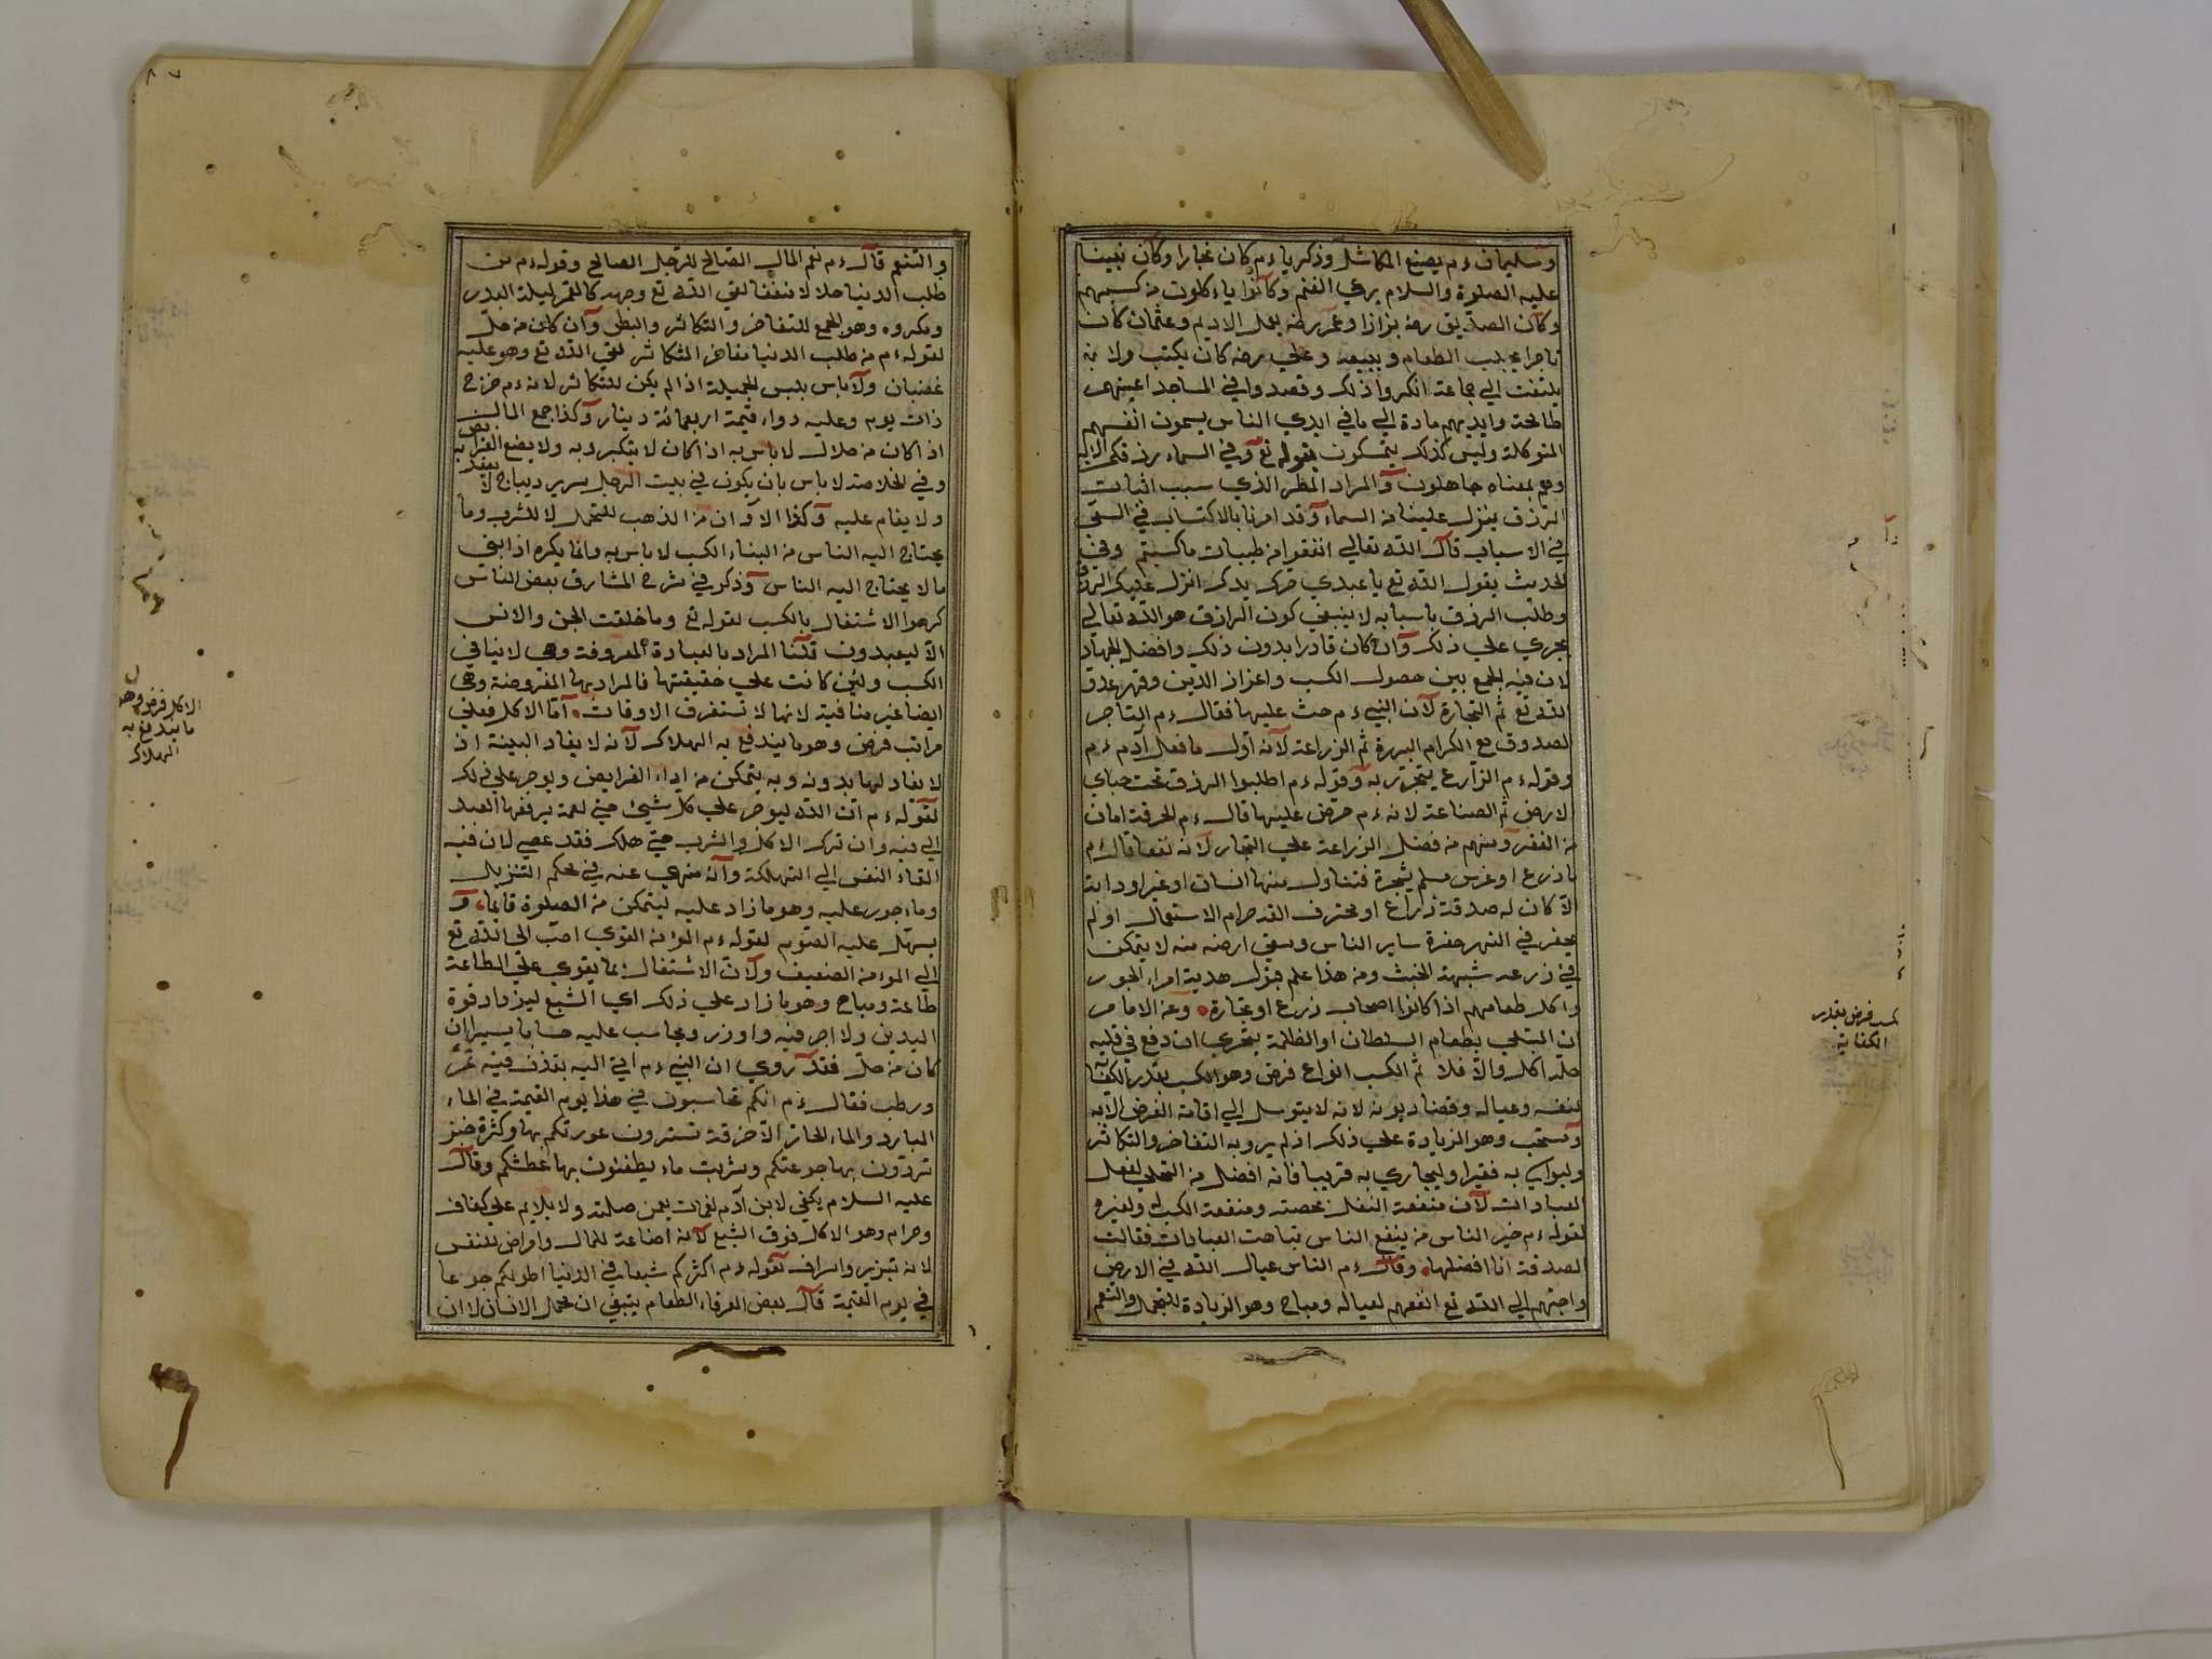 وسليمان ءم يصنع المكاتل وذكرياء ءم كان نجارا وكان نبينا
عليه الصلوة والسلام يرعي الغنم وكانوا ياءكلون من كسبهم
وكان الصديق رضه بزازا وعمر رضه يعمل الاديم وعثمان كان
تاجرا يجلب الطعام ويبيعه وعلي رضه كان يكتب ولا
يلتفت الي جماعة انكروا ذلك وقعدوا في المساجد اعينهم
طامحة وايديهم مادة الي ما في ايدي الناس يسمون انفسهم
المتوكلة وليس كذلك يتمسكون بقوله تع وفي السماء رزقكم الآية
وهم بمعناه جاهلون والمراد المطر الذي سبب اثبات
الرزق ينزل علينا من السماء وقد امرنا بالاكتساب في السعي
في الاسباب قال الله تعالي انفقوا من طيبات ما كسبتم وفي
الحديث يقول الله تع يا عبدي حرك يدك انزل عليك الرزق
وطلب الرزق باسبابه لا ينبغي كون الرازق هو الله تعالي
يجري علي ذلك وان كان قادرا بدون ذلك وافضل الجهاد
لان فيه الجمع بين حصول الكسب واعزاز الدين وقهر عدو
الله تع ثم التجارة لان النبي ءم حث عليها فقال ءم التاجر
الصدوق مع الكرام البررة ثم الزراعة لانه اول ما فعل آدم ءم
وقوله ءم الزارع يتجر ربه وقوله ءم اطلبوا الرزق تحت خباي
لارض ثم الصناعة لانه ءم حرض عليها قال ءم الحرفة امان
من الفقر ومنهم من فضل الزراعة علي التجار لانه نفعا قال ءم
ما زرع او غرس مسلم شجرة فتناول منها انسان او غير او دابة
الا كان له صدقة زراع او محترف القد حرام الاستعمال او لم
يحفر في النهر حفرة ساير الناس وسقي ارضه منه لا يتمكن
في زرعه شبهة الخبث ومن هذا علم هدية امراء الجور
واكل طعامهم اذا كانوا اصحاب زرع او تجارة وعن الامام
ان المبتلي بطعام السلطان او الظلمة يتحري ان دفع في قلبه
حله اكل والا فلا ثم الكسب انواع فرض وهو الكسب بقدر الكفاية
لنفسه وعياله وقضاء ديونه لانه لا يتوسل الي اقامة الفرض الا به
ومستحب وهو الزيادة علي ذلك اذ لم يرو به التفاخر والتكاثر
وليواسي به فقيرا وليجازي به قريبا فانه افضل من التخلي لفعل
العبادات لان منفعة النفل تخصه ومنفعة الكسب له ولغيره
لقوله ءم خير الناس من ينفع الناس تباهت العبادات فقالت
الصدقة انا افضلها وقال ءم الناس عيال الله في الارض
واحبهم الي الله تع انفعهم لعياله ومباح وهو الزيادة للتجمل والتنعم
كسب فرض بقدر
الكفاية
والتنعم قال ءم نعم المال الصالح للرجل الصالح وقوله ءم من
طلب الدنيا حلالا متعففا لقي الله تع وجهه كالقمر ليلة البدر
ومكروه وهو الجمع للتفاخر والتكاثر والبطر وان كان من حل
لقوله ءم من طلب الدنيا مفاخرا متكاثرا لقي الله تع وهو عليه
غضبان ولا باس بلبس الجميلة اذا لم يكن للتكاثر لانه ءم خرج
ذات يوم وعليه رداء قيمة اربعمائة دينار وكذا جمع المال
اذا كان من حلال لا باس به اذا كان لا يتكبر به ولا يضع الفرايض
وفي الخلاصة لا باس بان يكون في بيت الرجل سرير ديباج لا يقعد
ولا ينام عليه وكذا الاوان من الذهب للتجمل لا للشرب وما
يحتاج اليه الناس من البناء الكسب لا باس به وانما يكره اذا بقي
ما لا يحتاج اليه الناس وذكر في شرح المشارق بعض الناس
كرهوا الاشتغال بالكسب لقوله تع وما خلقت الجن والانس
الا ليعبدون قلنا المراد بالعبادة المعروفة وهي لا ينافي
الكسب ولئن كانت علي حقيقتها فالمراد بها المفروضة وهي
ايضا غير منافية لانها لا تستغرق الاوقات اما الاكل فعلي
مراتب فرض وهو ما يندفع به الهلاك لانه لا بقاء البينة اذ
لا بقاء لها بدونه وبه يتمكن من اداء الفرايض ويوجر علي ذلك
لقوله ءم ان الله ليوجر علي كل شيئ حتي لقمة يرفعها العبد
الي فيه وان ترك الاكل والشرب حتي هلك فقد عصي لان فيه
القاء النفس الي التهلكة وانه منهي عنه في محكم التنزيل
وماءجور عليه وهو ما زاد عليه ليتمكن من الصلوة قايما و
يسهل عليه الصوم لقوله ءم المؤمن القوي احب الي الله تع
الي المؤمن الضعيف ولان الاشتغال بما يقوي علي الطاعة
طاعة ومباح وهو ما زاد علي ذلك اي الشبع ليزداد قوة
البدن ولا اجر فيه ولا وزر ويحاسب عليه حسابا يسيرا ان
كان من حل فقد روي ان النبي ءم اتي اليه بقذف فيه تمر
ورطب فقال ءم انكم تحاسبون في هذا يوم القيمة في الماء
البارد والماء الحار الا خرقة تسترون عورتكم بها وكسرة خبز
تردون بها جوعتكم وشربت ماء يطفئون بها عطشكم وقال
عليه السلام يكفي لابن آدم لقمات يقمن صلبه ولا يلايم علي كفاف
وحرام وهو الاكل فوق الشبع لانه اضاعة للمال وامراض للنفس
لانه تبزير واسراف لقوله ءم اكثركم شبعا في الدنيا اطولكم جوعا
في يوم القيمة قال بعض العرفاء الطعام ينبغي ان يحمل الانسان لا ان
الاكل فرض وهو
ما يندفع به
الهلاك
٨٧